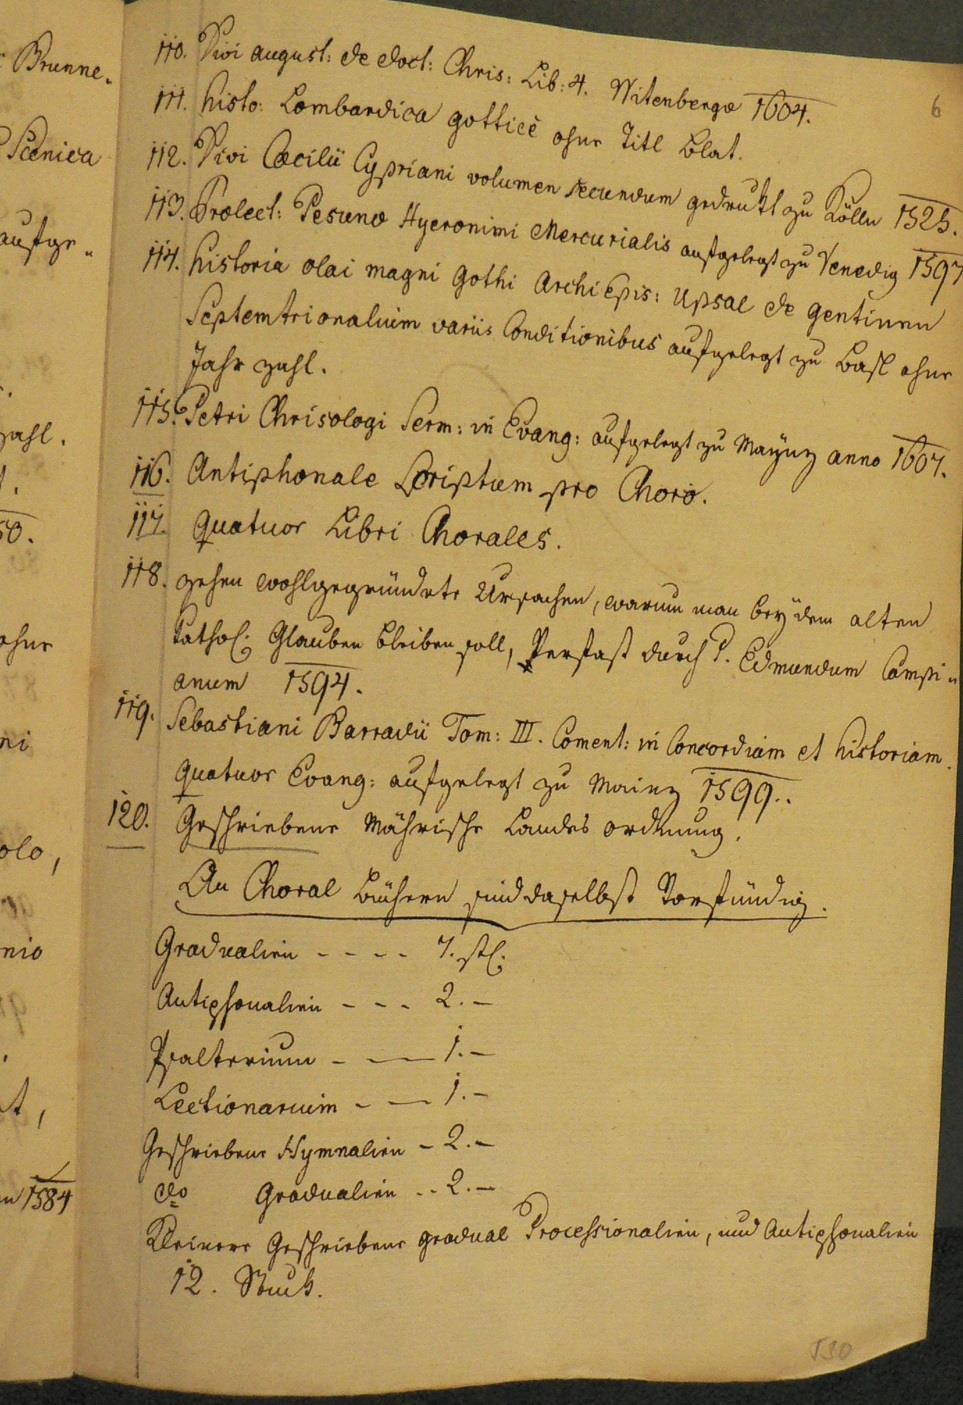 6
110. Divi august: de doct: Chris: Lib: 4. Witenbergæ 1604.
111. Histo: Lombardica gotticè ohne Titl Blat.
112. Divi Cæcilii Cypriani volumen secundum gedrukt zu Kölln 1525.
113. Prælect: Pesunæ Hyeronimi Mercurialis aufgelegt zu Venedig 1597
114. Historia olai magni Gothi Archi Epis: Upsal de gentiuum
Septemtrionalium variis Conditionibus aufgelegt zu Basl ohne
Jahr zahl.
115. Petri Chrisologi Serm: in Evang: aufgelegt zu Maÿnz anno 1607.
116. Antiphonale Scriptum pro Choro.
117. Quatuor Libri Chorales.
118. zehen wohlgegründete Ursachen, warum man beÿ dem alten
Cathol: Glauben bleiben soll, Verfast durch P. Edmundum Campi-
anum 1594.
119. Sebastiani Barradii Tom: III. Coment: in Concordiam et Historiam
Quatuor Evang: aufgelegt zu Mainz 1599.
120. Geschriebene Mährische Landes ordnung.
An Choral Büchern sind daselbst Vorfündig.
Gradualien - - - - 7. stl:
Antiphonalien - - - 2. -
Psalterium - - 1. -
Lectionarium - - 1. -
Geschriebene Hymnalien - 2. -
do Gradualien - - 2. -
Kleinere Geschriebene gradual Processionalien, und Antiphonalien
12. Stuck.
530
Brunne-
Scenica
aufge-
zahl.
50.
ohne
ni
olo,
nio
t,
1584